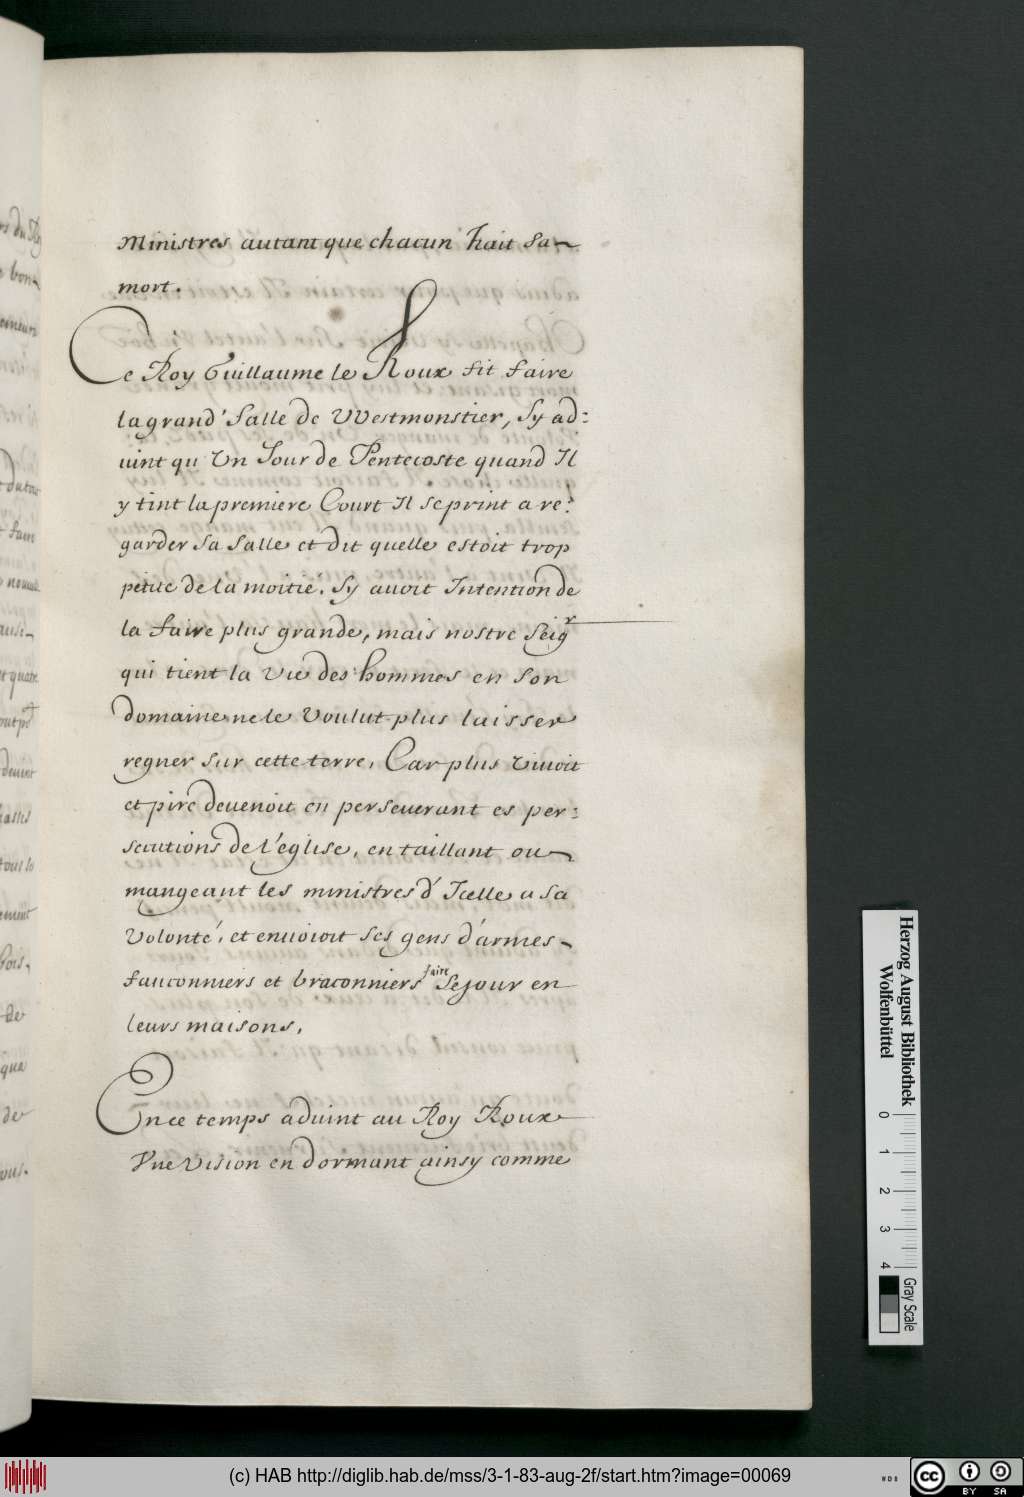 Ministres autant que chacun hait sa
mort.
Ce Roy Guillaume le Roux fit faire
la grand' Salle de VVestmonstier, Sy ad:
uint qu Vn Jour de Pentecoste quand Il
y tint la premiere Court Il se print a re:
garder sa salle et dit quelle estoit trop
petite de la moitié, Sy auoit Intention de
la faire plus grande, mais nostre Seigr
qui tient la Vie des hommes en son
domaine ne le Voulut plus laisser
regner sur cette terre, Car plus viuoit
et pire deuenoit en perseuerant es per:
secutions de l'eglise, en taillant ou
mangeant les ministres d'Icelle a sa
Volonté, et enuoioit ses gens d'armes
fauconniers et braconniers faire Sejour en
leurs maisons.
En ce temps aduint au Roy Roux
Vne Vision en dormant ainsy comme
Herzog August Bibliothek
Wolfenbüttel
0 1 2 3 4
Gray Scale
(c) HAB http://diglib.hab.de/mss/3-1-83-aug-2f/start.htm?image=00069
cc BY SA